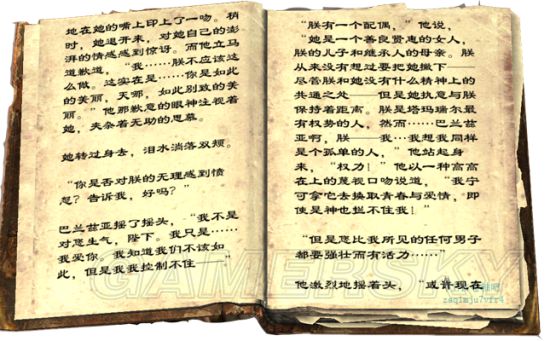 地在她的嘴上印上了一吻。稍
时，她退开来，对她自己的澎
湃的情感感到惊讶。而他立马
道歉道，“我……朕不应该这
么做。这实在是……你是如此
的美丽，天哪，如此别致的美
丽。”他那歉意的眼神注视着
她，夹杂着无助的思慕。
她转过身去，泪水淌落双颊。
“你是否对朕的无理感到愤
怒？告诉我，好吗？”
巴兰兹亚摇了摇头，“我不是
对您生气，陛下。我只是……
我爱你。我知道我们不该如
此，但是我我控制不住——”
“朕有一个配偶，”他说，
“她是一个善良贤惠的女人，
朕的儿子和继承人的母亲。朕
从来没有想过要把她撇下——
尽管朕和她没有什么精神上的
共通之处——但是她执意与朕
保持着距离。朕是塔玛瑞尔最
有权势的人，然而……巴兰兹
亚啊，朕——我…我想我同样
是个孤单的人，”他站起身
来，“权力！”他以一种高高
在上的蔑视口吻说道，“我宁
可拿它去换取青春与爱情，即
使是神也拦不住我！”
“但是您比我所见的任何男子
都要强壮而有活力……”
他激烈地摇着头，“或许现在
GAMERSKY
zaq1mju7vfr4